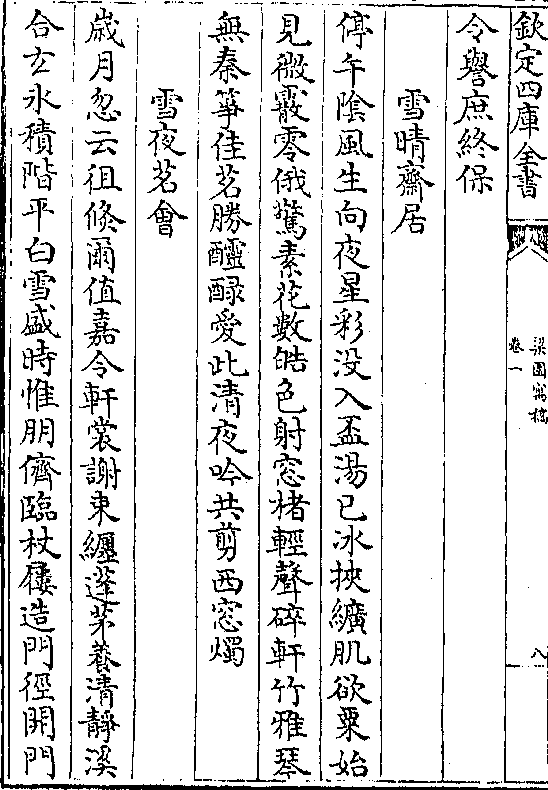 欽定四庫全書
梁園寓稿
卷一
八
令譽庶終保
雪晴齋居
停午陰風生向夜星彩没入盃湯已冰挾纊肌欲粟始
見微霰零俄驚素花數皓色射窓楮輕聲碎軒竹雅琴
無秦箏佳茗勝醽醁愛此清夜吟共剪西窓燭
雪夜茗會
歲月忽云徂倐爾值嘉令軒裳謝束纏蓬茅養清靜溪
合玄氷積階平白雪盛時惟朋儕臨杖屨造門徑開門